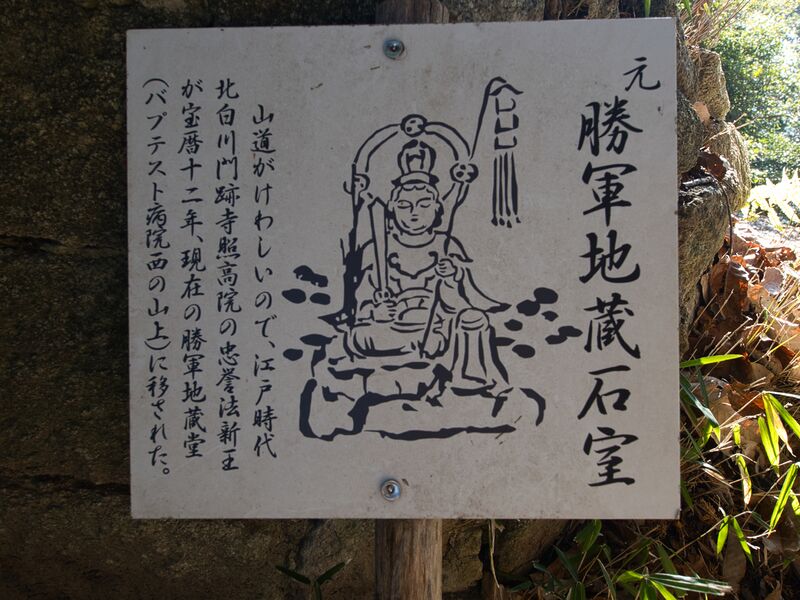 元
勝軍地蔵石室
山道がけわしいので、江戸時代
北白川門跡寺照高院の忠誉法新王
が宝暦十二年、現在の勝軍地蔵堂
（バプテスト病院西の山上）に移された。